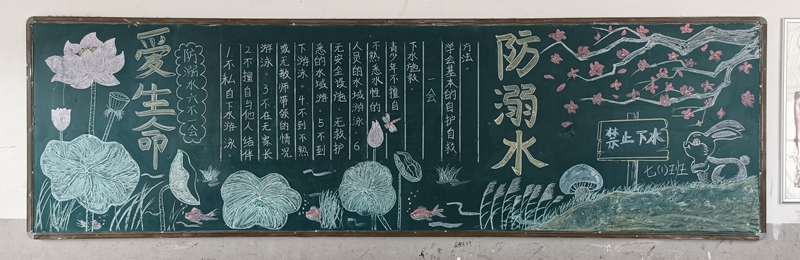 爱生命
防溺水六不一会
1.不私自下水游泳。
2.不擅自与他人结伴
游泳。3.不在无家长
或无教师带领的情况
下游泳。4.不到不熟
悉的水域游。5不到
无安全设施、无救护
人员的水域游泳。6.
不熟悉水性的
青少年不擅自
下水施救。
一会
学会基本的自护自救
方法。
防溺水
禁止下水
七(1)班